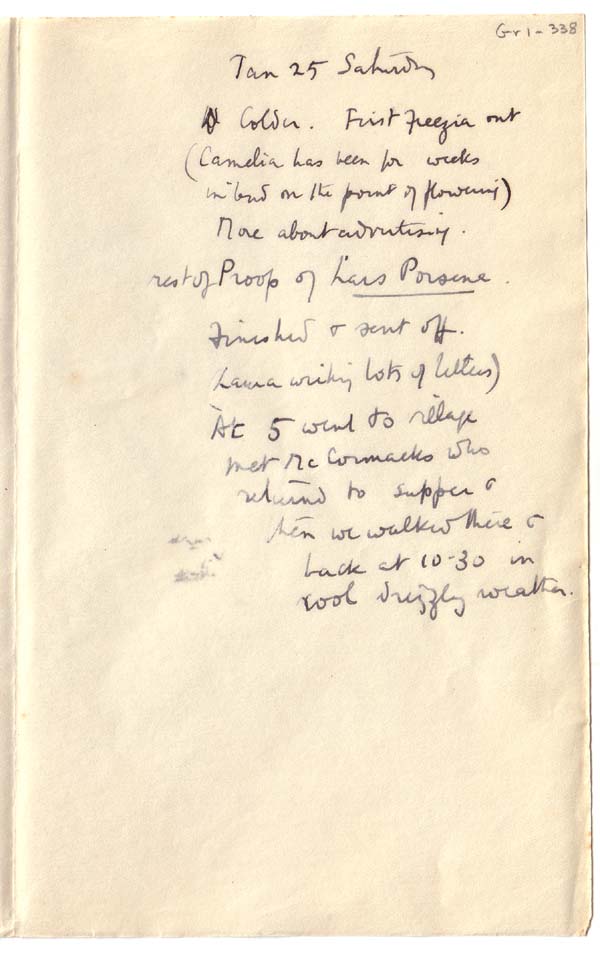 Gr1-338
Jan 25 Saturday
Colder. First freezia out
(Camelia has been for weeks
in bud on the point of flowering)
More about advertising.
rest of Proofs of Lars Porsena.
Finished & sent off.
Laura writing lots of letters)
At 5 went to village
met McCormacks who
returnd to supper &
then we walked there &
back at 10-30 in
cool drizzly weather.